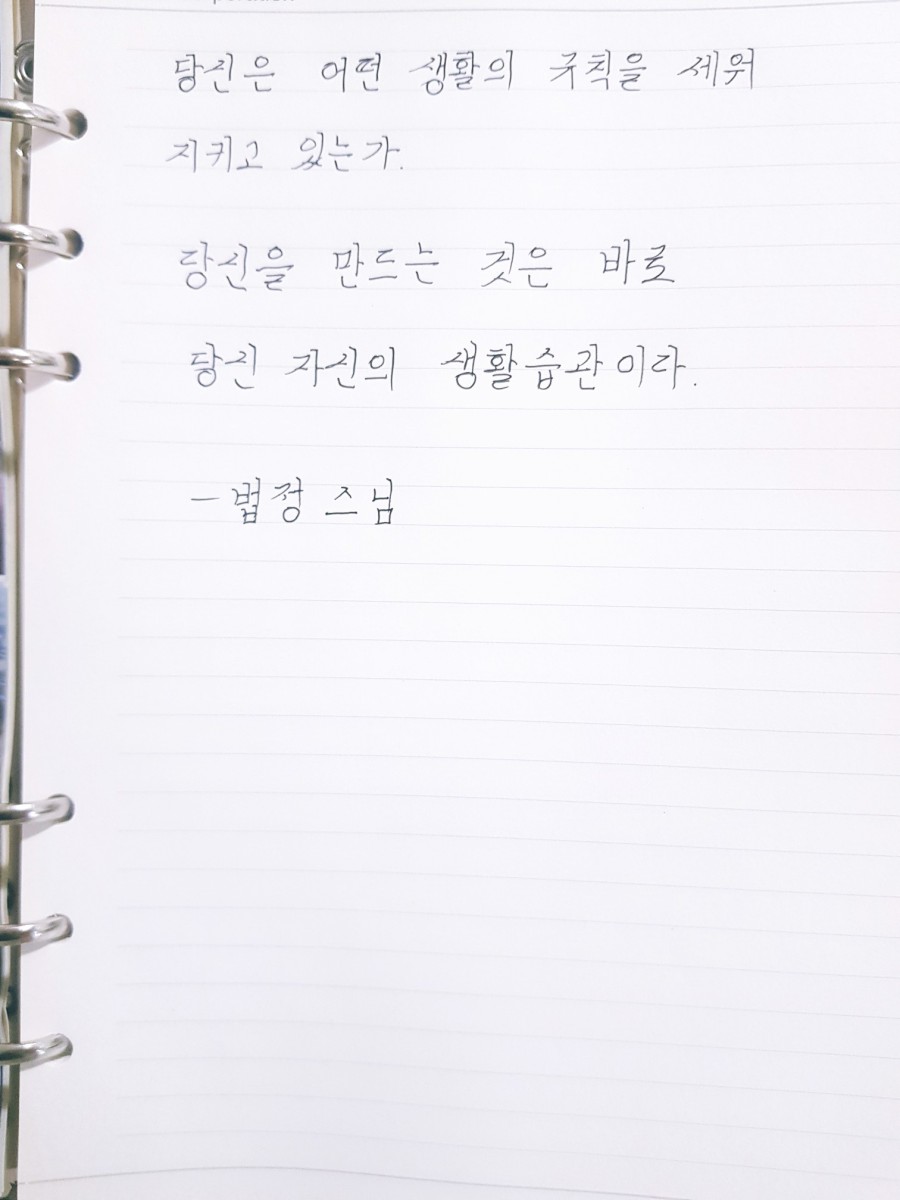 당신은 어떤 생활의 규칙을 세워
지키고 있는가.
당신을 만드는 것은 바로
당신 자신의 생활습관이라.
- 법정 스님